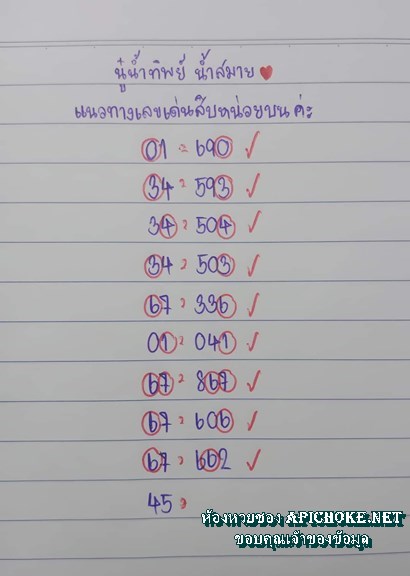 นู๋น้ำทิพย์ น้ำสมาย
แนวทางเลขเด่นสิบหน่วยบน ค่ะ
01 = 690 ✓
34 = 593 ✓
34 = 504 ✓
34 = 503 ✓
67 = 336 ✓
01 = 041 ✓
67 = 867 ✓
67 = 606 ✓
67 = 662 ✓
45 =
ห้องหวยซอง APICHOKE.NET
ขอบคุณเจ้าของข้อมูล